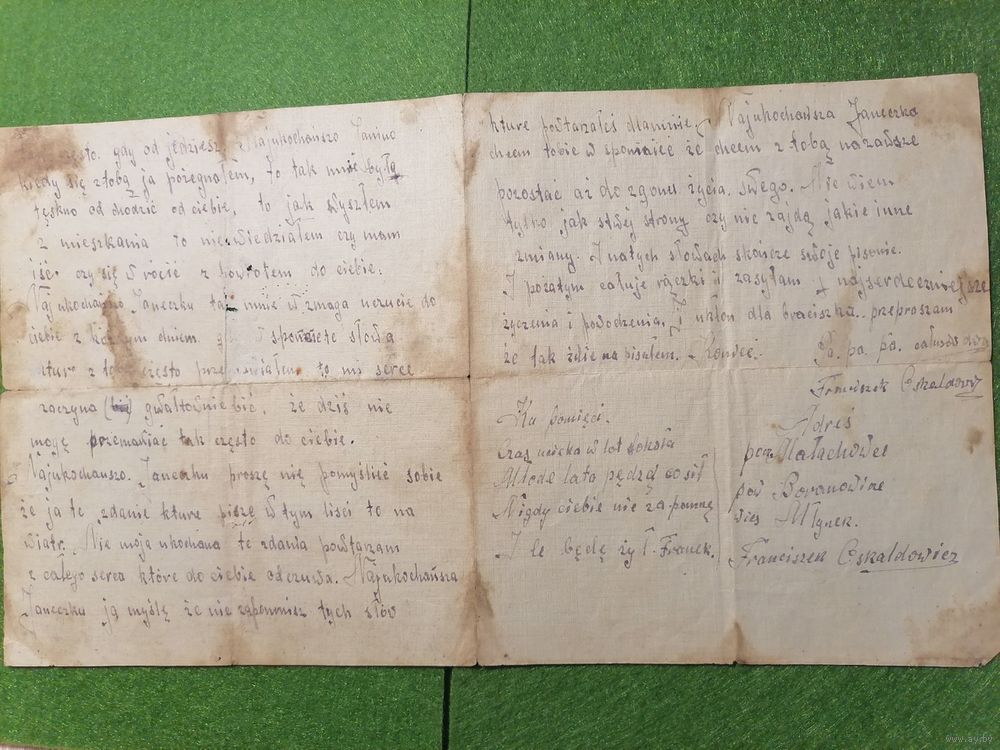 często gdy od jedziesz Najukochańszo Janino
kiedy się z tobą ja pożegnałem, to tak mnie było
tęskno od chodzić od ciebie, to jak wyszłem
z mieszkania to niewiedziałem czy mam
iść czy się wrócić z powrotem do ciebie.
Najukochańszo Janeczku tak mnie wzmaga uczucie do
ciebie z każdym dniem słowa
z tobą często to mi serce
zaczyna gwałtownie bić, że dziś nie
mogę przemawiać tak często do ciebie.
Najukochańszo Janeczku proszę nię pomyślić sobie
że ja te zdanie kture piszę w tym liści to na
wiatr. Nie moja ukochana te zdania powtarzam
z całego serca które do ciebie odczuwa. Najukochańsza
Janeczku ją myślę że nie zapomnisz tych słów
kture powtarzałeś dlamnie Najukochańsza Janeczko
chcem tobie wspomieć że chcem z tobą nazawsze
pozostać aż do zgonu życia swego. Nie wiem
tylko jak stwej strony czy nie zajdą jakie inne
zmiany. I natych słowach skończe swoje pisanie.
I pozatym całuje rączki i zasyłam najserdeczniejsze
życzenia i powodzenia, ukłon dla braciszka. przepraszam
że tak źlie na pisałem. Koniec. Pa. pa. pa.
Franciszek
Ku pamięci.
Czas ucieka w lot sokoła
Młode lata pędzą co sił
Nigdy ciebie nie zapomnę
I le będę żył. Franek.
Adres
pocz Małachowce
pow Baranowicze
wieś Młynek.
Franciszek Oskaldowicz
www.ay.by